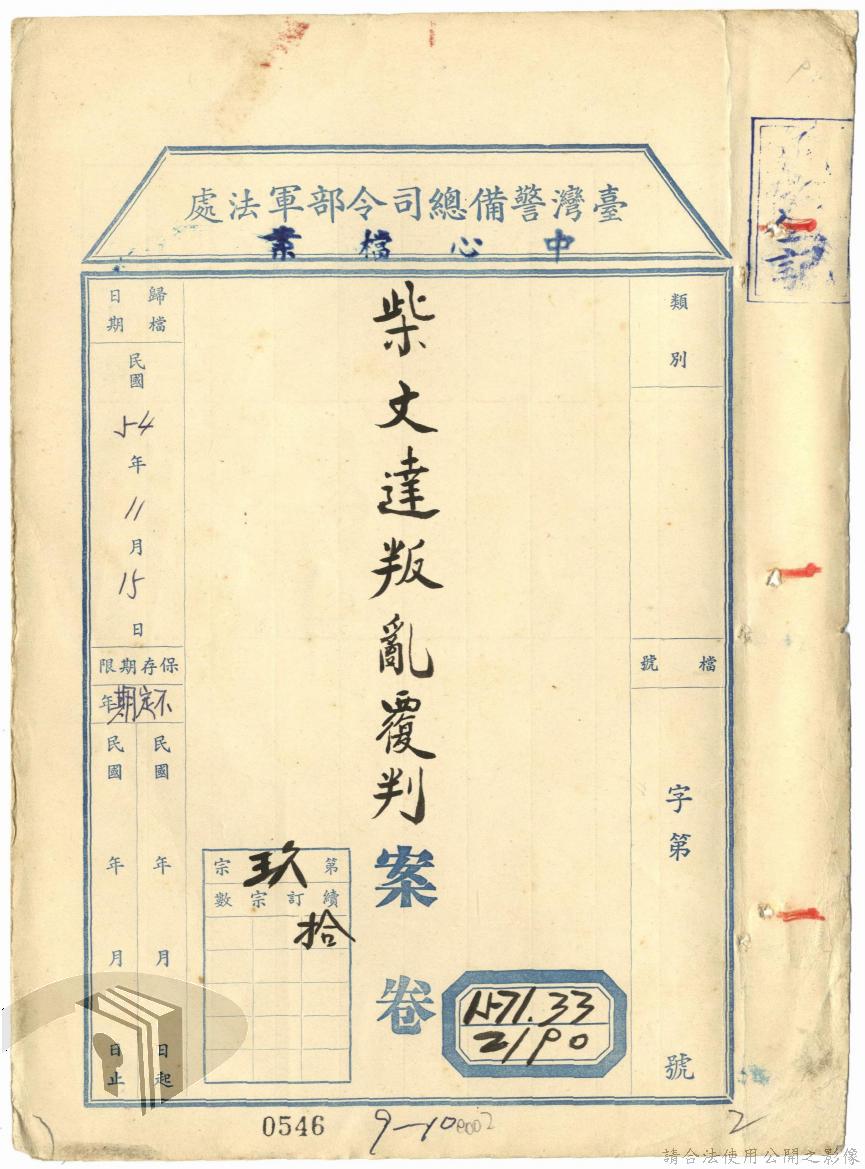 臺灣警備總司令部軍法處
中心檔案
類別
檔號
字第
號
柴文達叛亂覆判案卷
第玖宗
續訂宗數
拾
1571.33
2190
歸檔日期
民國54年11月15日
保存期限
不定期年
民國 年 月 日起
民國 年 月 日止
0546
9-10
0002
2
請合法使用公開之影像